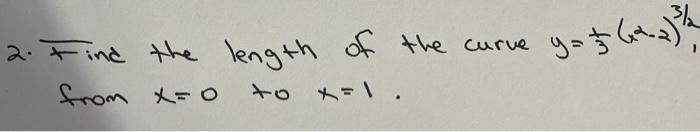 2. Find the length of the curve y = 1/3 (x²-2)^3/2,
from x=0 to x=1.